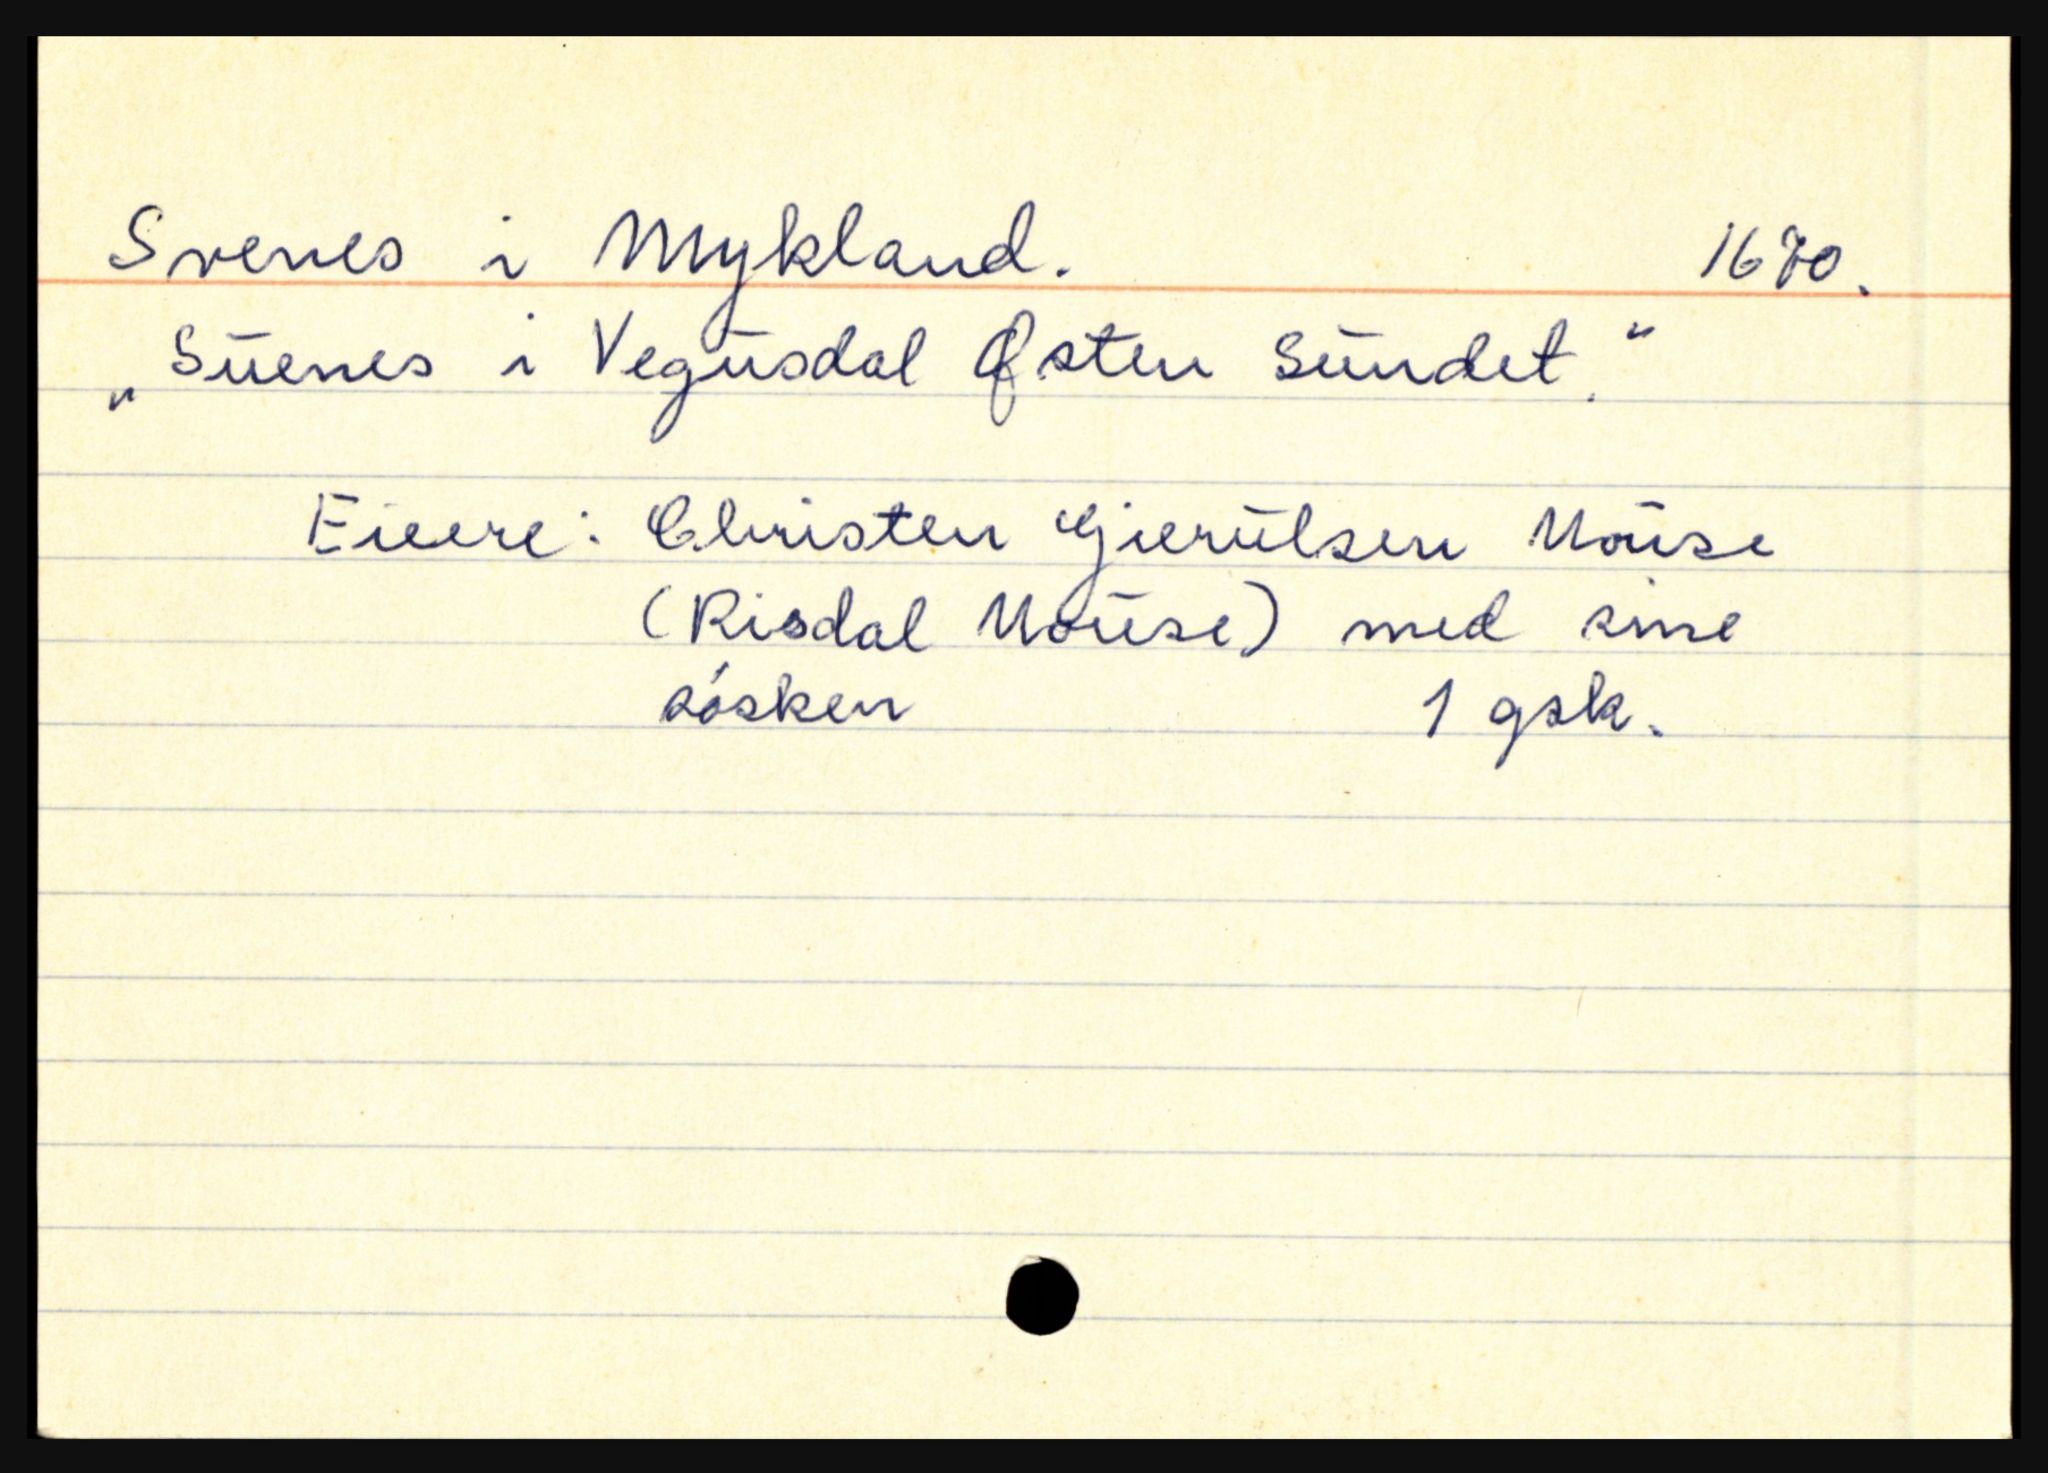 Svenes i Mykland. 1670.
„Suenes i Vegusdal Østen Sundet.“
Eiere: Christen Gierulsen Mouse
(Risdal Mouse) med sine
sósken 1 gsk.